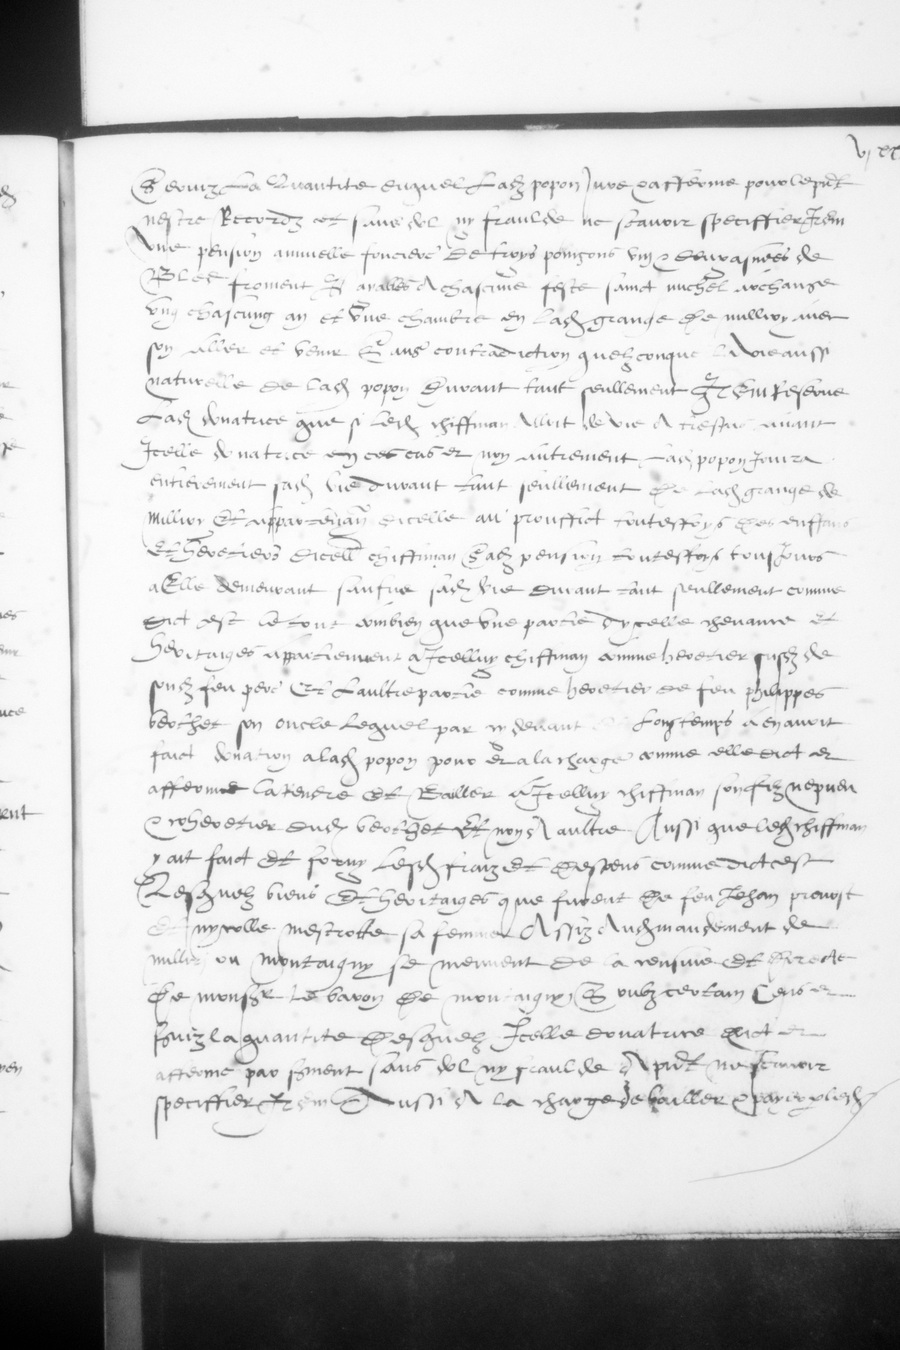 vi xx
Serviz La Quantite duquel Lad popon Jure & afferme pour le pnt
nestre Recordz et sans dol ny fraulde ne scavoir speciffier Item
Une pension annuelle fonciere De troys poinsons vin & deux asnees de
Bled froment payables A chascune feste sainct michel archange
Ung chascung an et Une chambre en lad grange de millery avec
son aller et venir Sans contradiction quelzconque la vie aussi
naturelle de lad popon Durant tant seullement Item Reserve
Lad donatrice que si led chiffman Alloit de vie A trespas avant
Icelle donatrice en ces cas et non autrement Lad popon Joura
entierement sad Vie Durant tant seullement de lad grange de
Millery Et appartenan dicelle au prouffict toutesfoys des enffans
Et heretiers dicell chiffman Sad pension toutesfoys tousJours
a Elle demeurant saufve sad Vie durant tant seullement comme
dict est le tout combien que Une partie dycelle chevance et
Heritaiges appartiennent a Icelluy chiffman comme heretier susd de
sond feu pere Et Laultre partie comme heretier de feu philippes
berthet son oncle Lequel par cy devant Longtemps a en auroit
faict donation a lad popon pour et a la charge comme elle dict et
afferme la rendre Et Bailler a Icelluy chiffman son filz nepveu
& coheretier dud berthet Et non A aultre Aussi que led chiffman
y ait faict Et forny Lesd fraiz et despens comme dict est
Lesquelz biens Et heritaiges que furent De feu Jehan prevost
Et nycolle mestrotte sa femme Assiz Aud mandement de
millery ou montaigny se meuvent de la censive Et directe
De monsr Le baron De montaigny Soubz certain Cens et
serviz la quantite desquelz Icelle donatrice dict et
afferme par serment sans dol ny fraulde A pnt ne scavoir
speciffier Item Aussi A la charge de bailler & payer